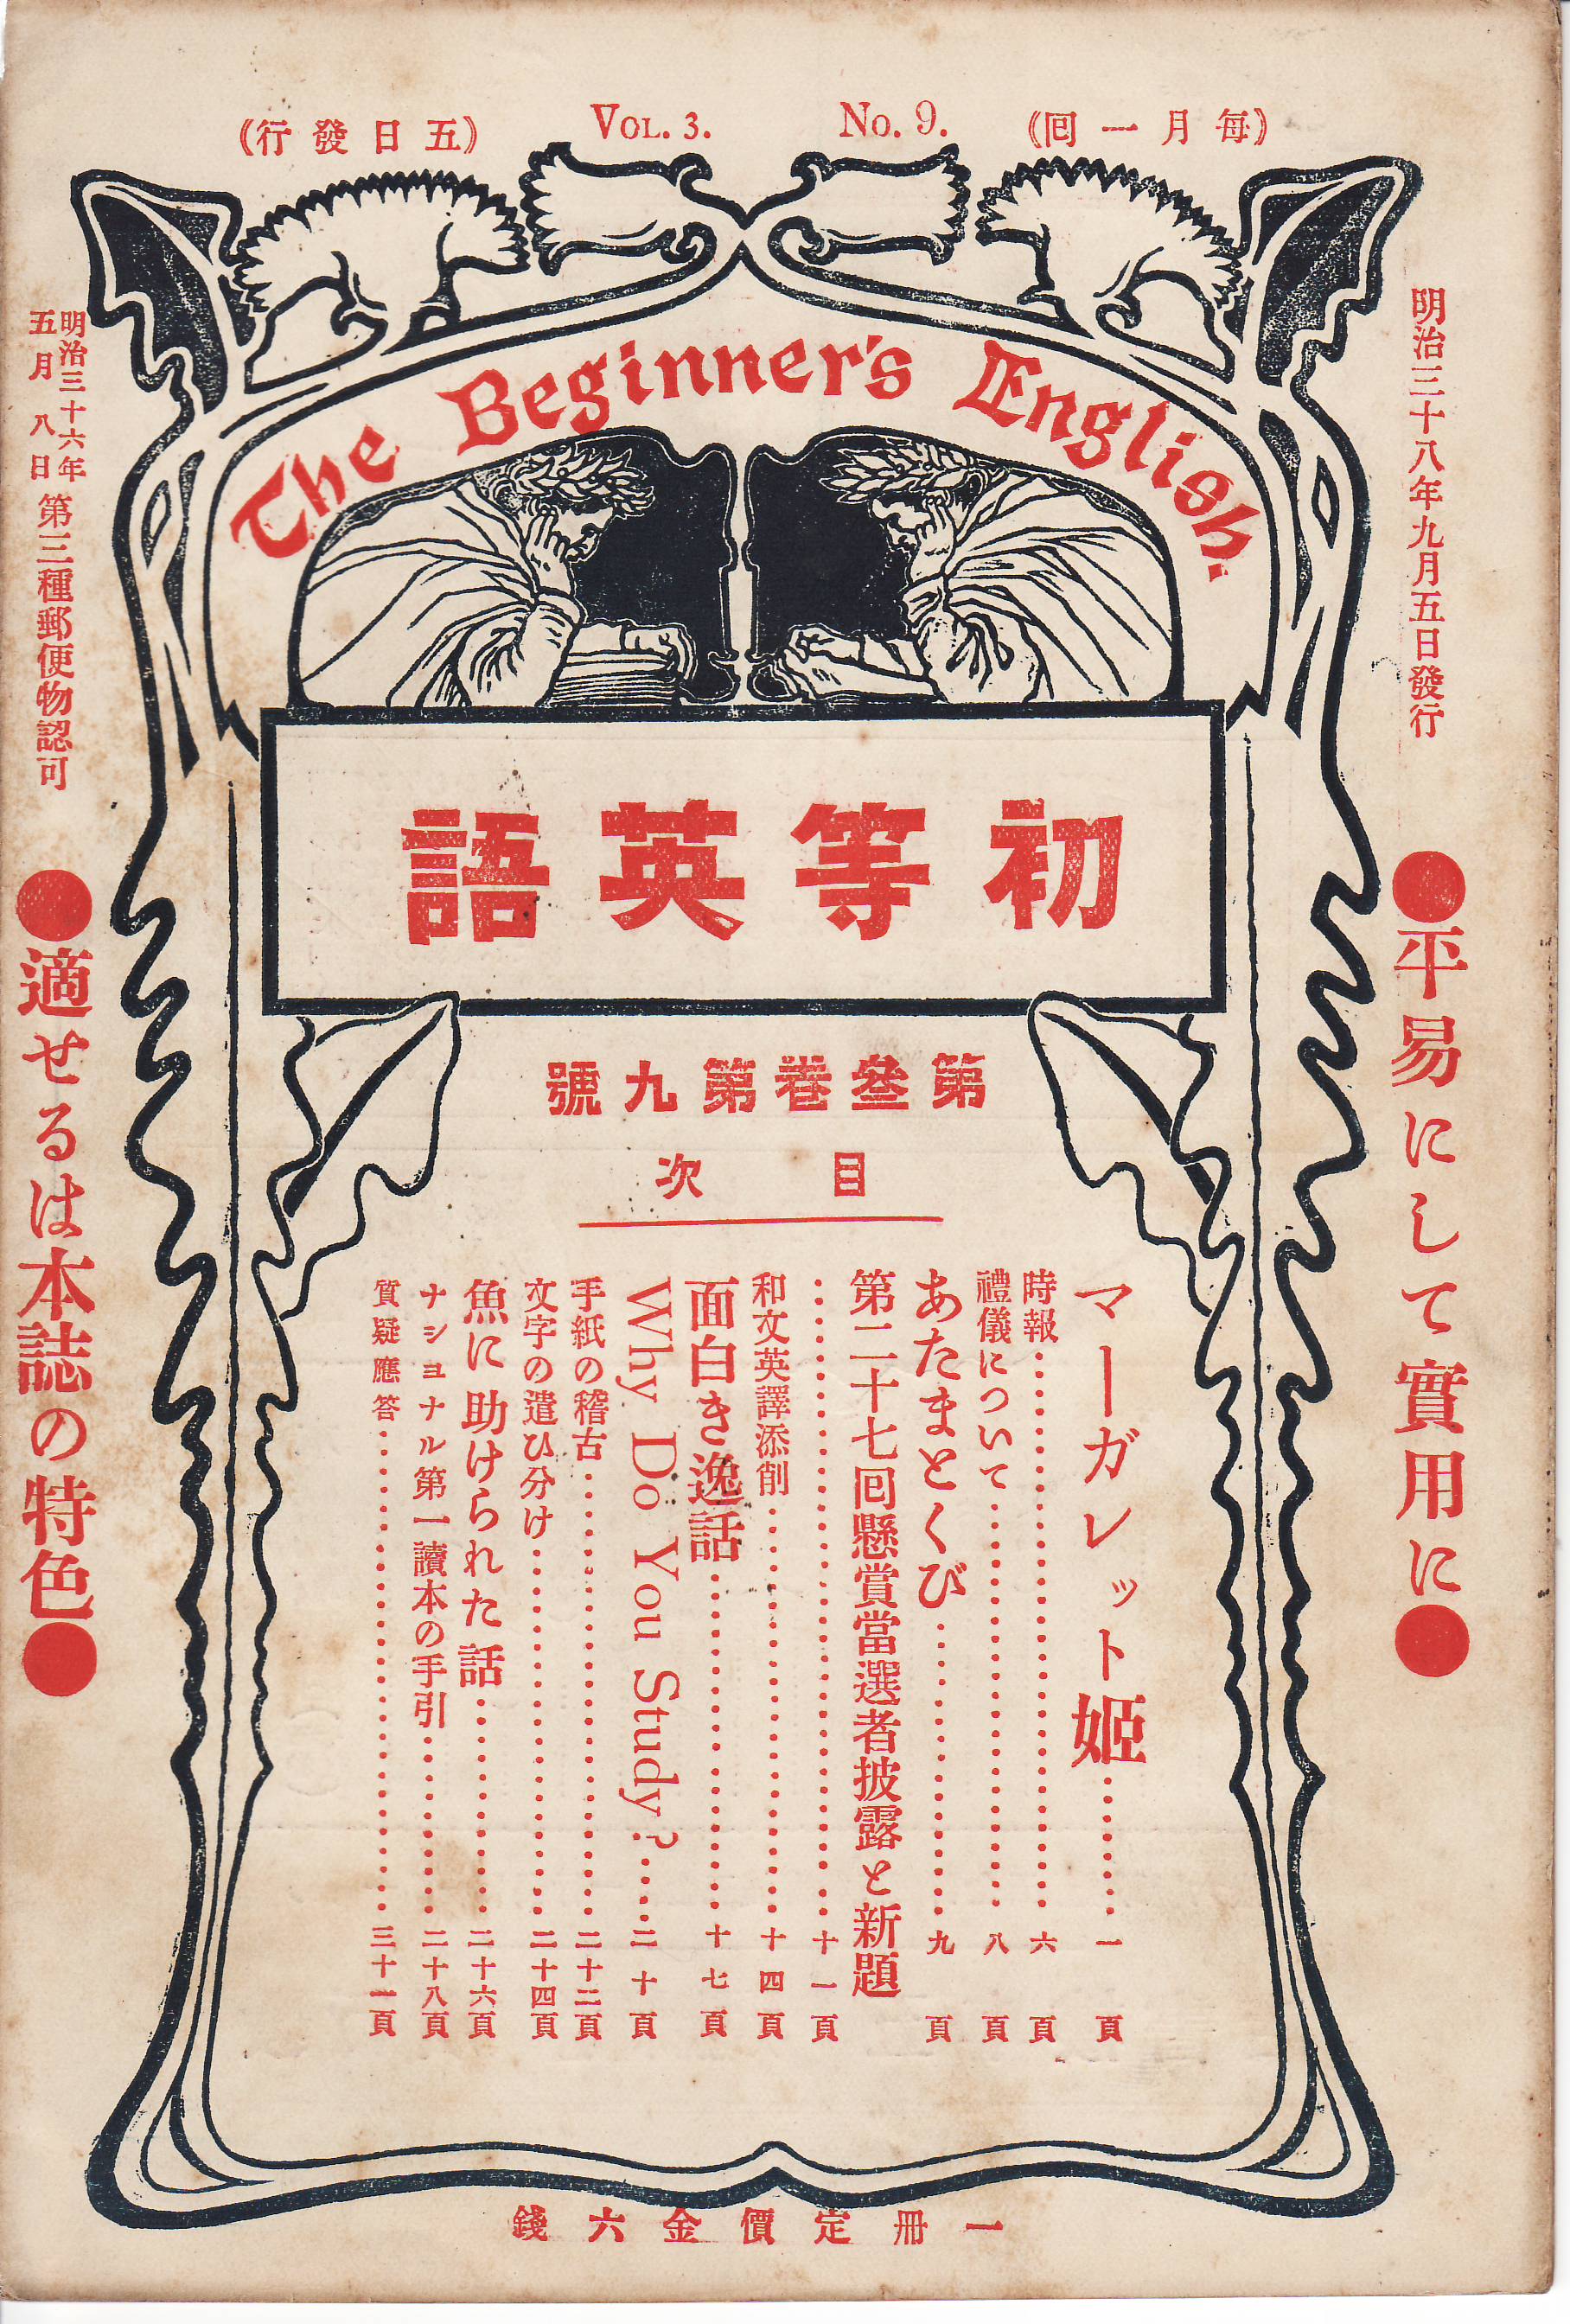 (每月一囘)
No. 9.
VOL. 3.
(五日發行)
明治三十八年九月五日發行
明治三十六年五月八日
第三種郵便物認可
The Beginner's English.
初等英語
●平易にして實用に●
●適せるは本誌の特色●
第叄卷第九號
目次
マーガレット姬…………一頁
時報…………六頁
禮儀について…………八頁
あたまとくび…………九頁
第二十七囘懸賞當選者披露と新題
…………十一頁
和文英譯添削…………十四頁
面白き逸話…………十七頁
Why Do You Study?……二十頁
手紙の稽古…………二十二頁
文字の遣ひ分け…………二十四頁
魚に助けられた話…………二十六頁
ナショナル第一讀本の手引…………二十八頁
質疑應答…………三十一頁
一册定價金六錢